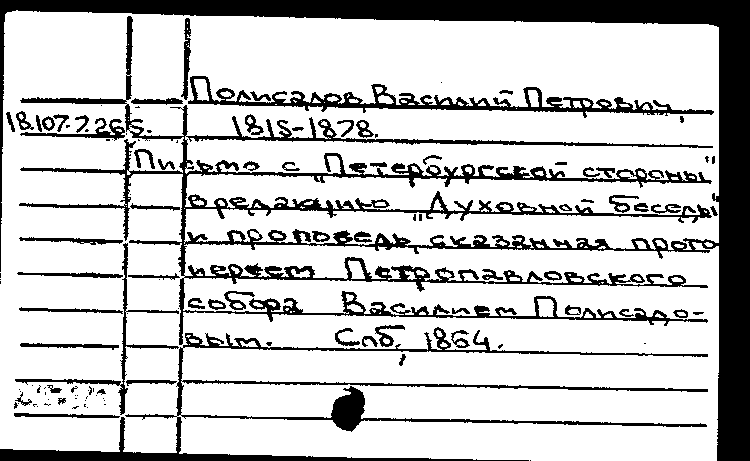 Полисадов, Василий Петрович,
18.107.7.265. 1815-1878.
Письмо с „Петербургской стороны"
в редакцию „Духовной беседы"
и проповедь, сказанная прото-
иереем Петропавловского
собора Василием Полисадо-
вым. Спб., 1864.